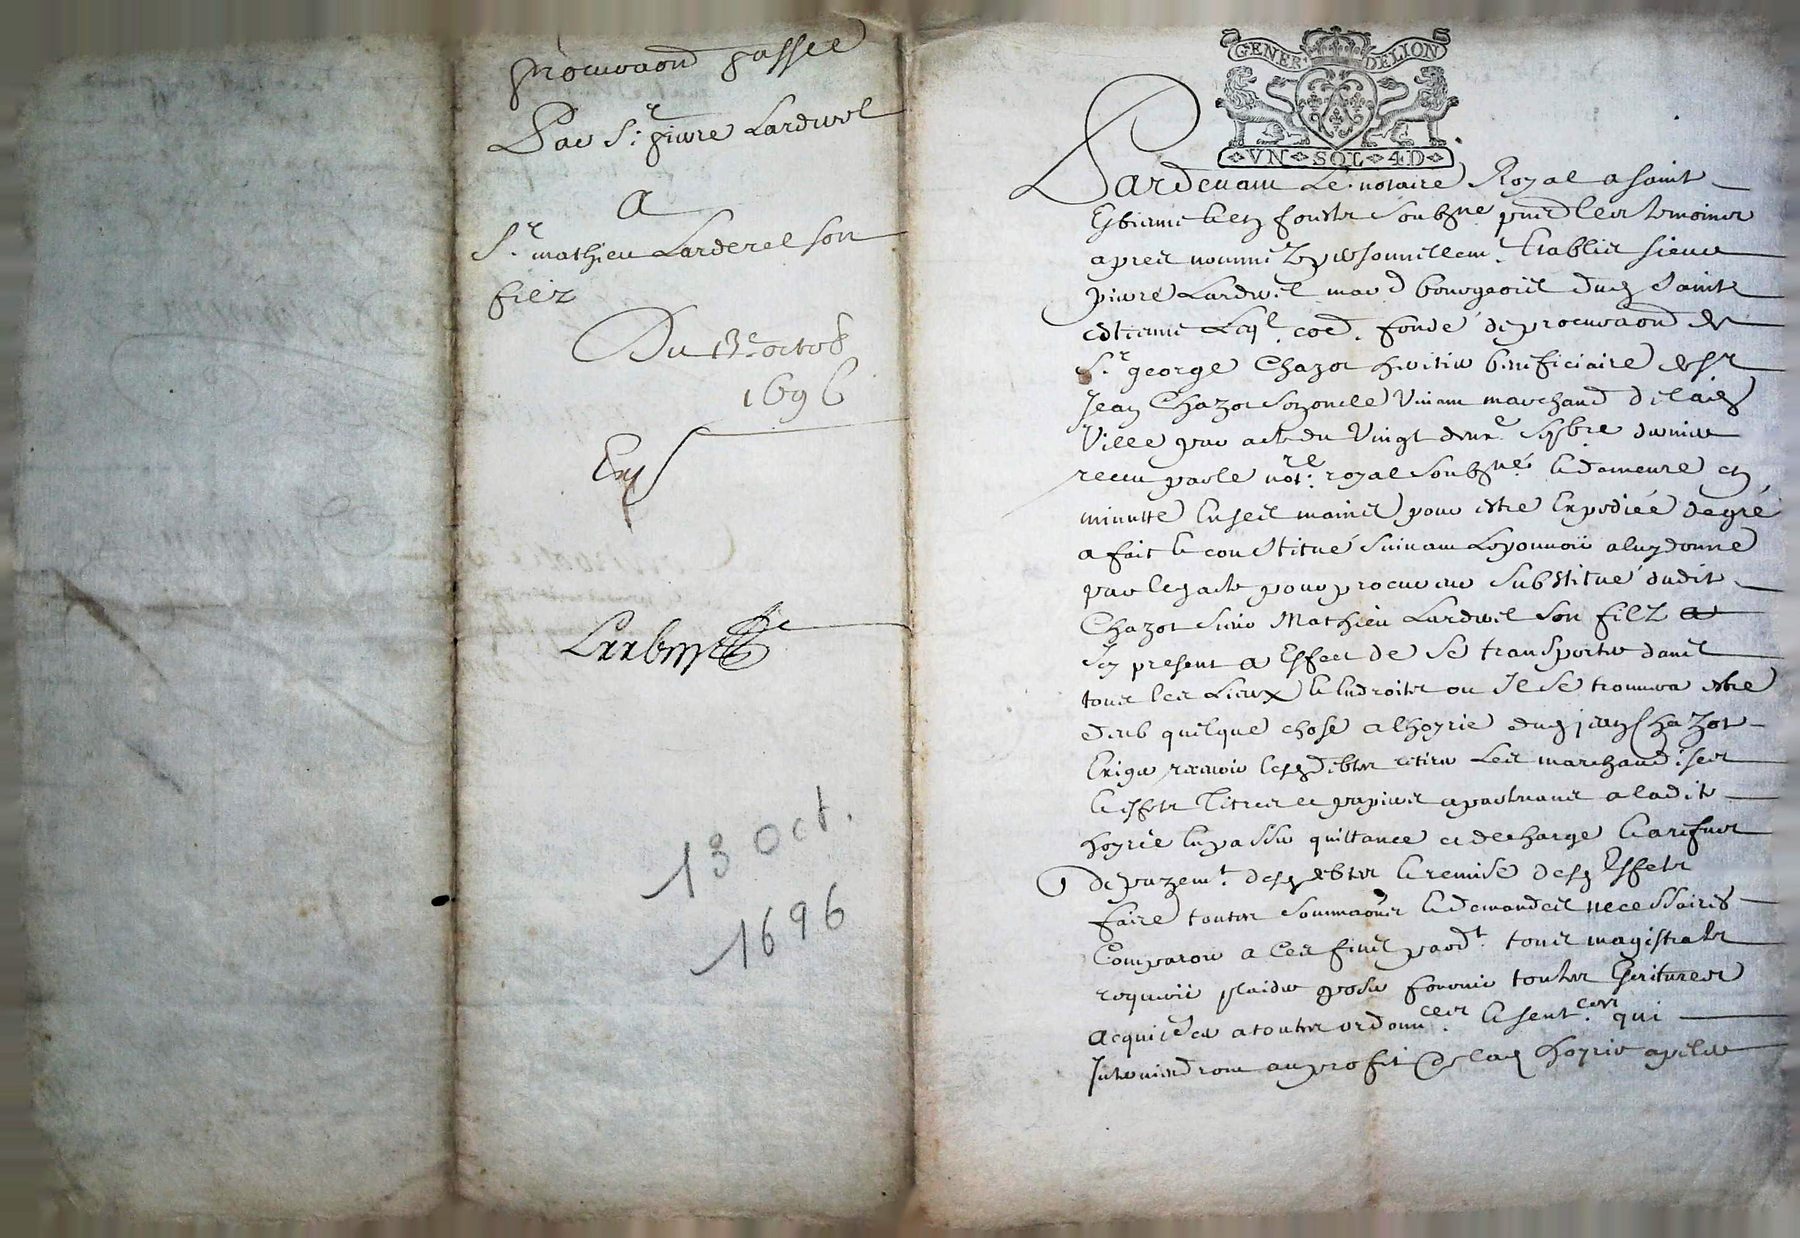 procuraon passee
Par S.r pierre Larderel
a
S.r mathieu Larderel son
filz
Du 13e octob
1696
Exp
13 oct.
1696
GENER. DE LION
VN SOL 4D
Pardevant Le notaire Royal a saint
Estienne en foretz soubz.ne pnd les tesmoins
apres nommez personnellem.t Establis sieur
pierre Larderel mard bourgeois dud saint
estienne fondé de procuraon de
S.r george Chazot heritier beneficiaire de sr
Jean Chazot vivant marchand de lad
Ville par acte du vingt deux.e 7bre dernier
receu par le not.re royal soubz.né et demeuré en
minutte en ses mains pour estre Expediée de gré
a fait et constitué suivant Le pouvoir a luy donné
par led acte pour procureur substitué dudit
Chazot sieur Mathieu Larderel son filz
Icy present a Effect de se transporter dans
tous les Lieux et Endroits ou Il se trouvera estre
deub quelque chose a lhoyrie dud jean Chazot
Exiger recevoir lesd debtes retirer Les marchandises
et effets Titres et papiers apartenans a ladite
hoyrie En passer quittance et decharge et a refus
de payem.t desd debtes et remise desd Effets
faire toutes sommaons et demandes necessaires
Comparoir a Ces fins pard.t tous magistrats
requerir plaider poser fournir toutes Escritures
acquiescer a toutes ordon.ces et sent.ces qui
Interviendront au profit de lad hoyrie apeller